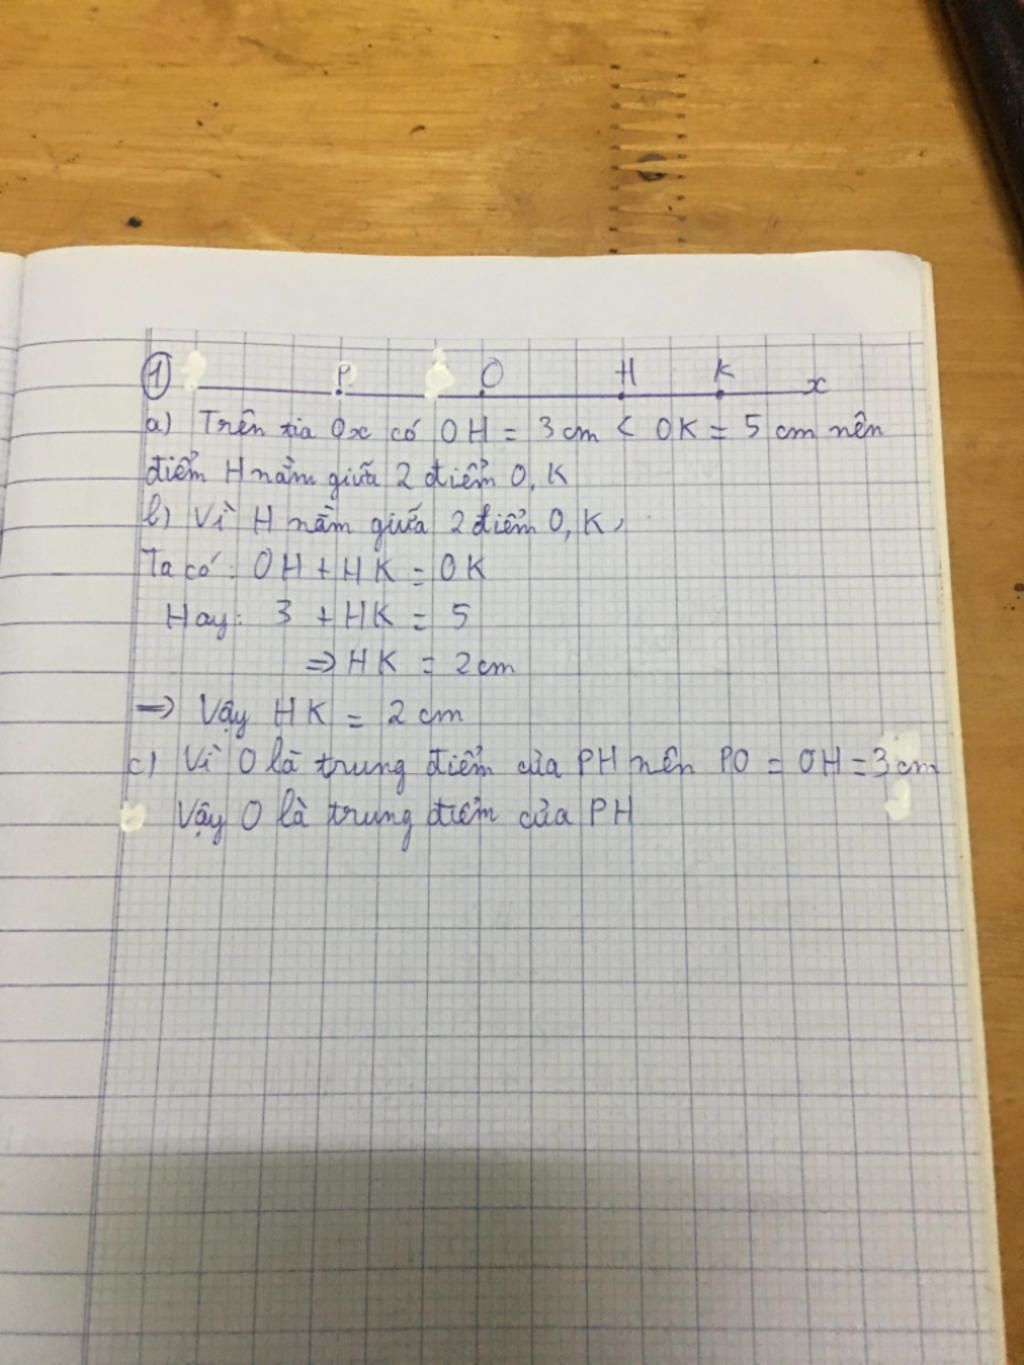 ① P O H K x
a) Trên tia Ox có OH = 3cm < OK = 5 cm nên
điểm H nằm giữa 2 điểm O, K
b) Vì H nằm giữa 2 điểm O, K,
Ta có: OH + HK = OK
Hay: 3 + HK = 5
⇒ HK = 2cm
⇒ Vậy HK = 2 cm
c) Vì O là trung điểm của PH nên PO = OH = 3cm
Vậy O là trung điểm của PH